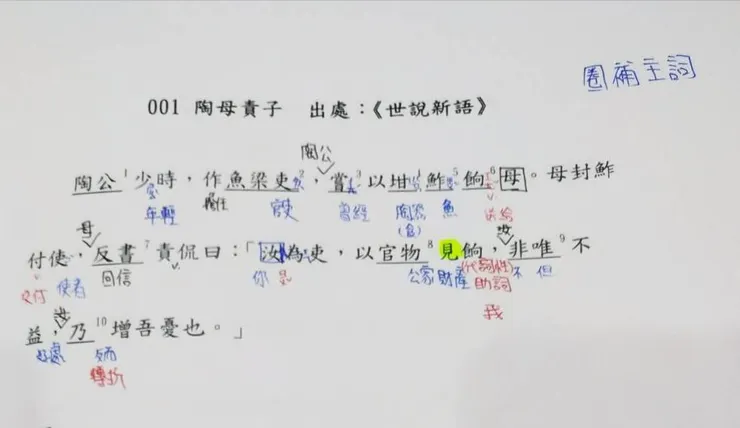 圈補主詞
001 陶母責子 出處：《世說新語》
陶公
陶公¹少時，作魚梁吏²，嘗³以坩⁴鮓⁵餉⁶母。母封鮓
年輕 擔任 官吏 曾經 陶器 魚 送給
母
付使，反書⁷責侃曰：「汝為吏，以官物⁸見餉，非唯⁹不
交付 使者 回信 你 是 公家財產 (代詞性)助詞 不但
我
益，乃¹⁰增吾憂也。」
好處 反而
轉折